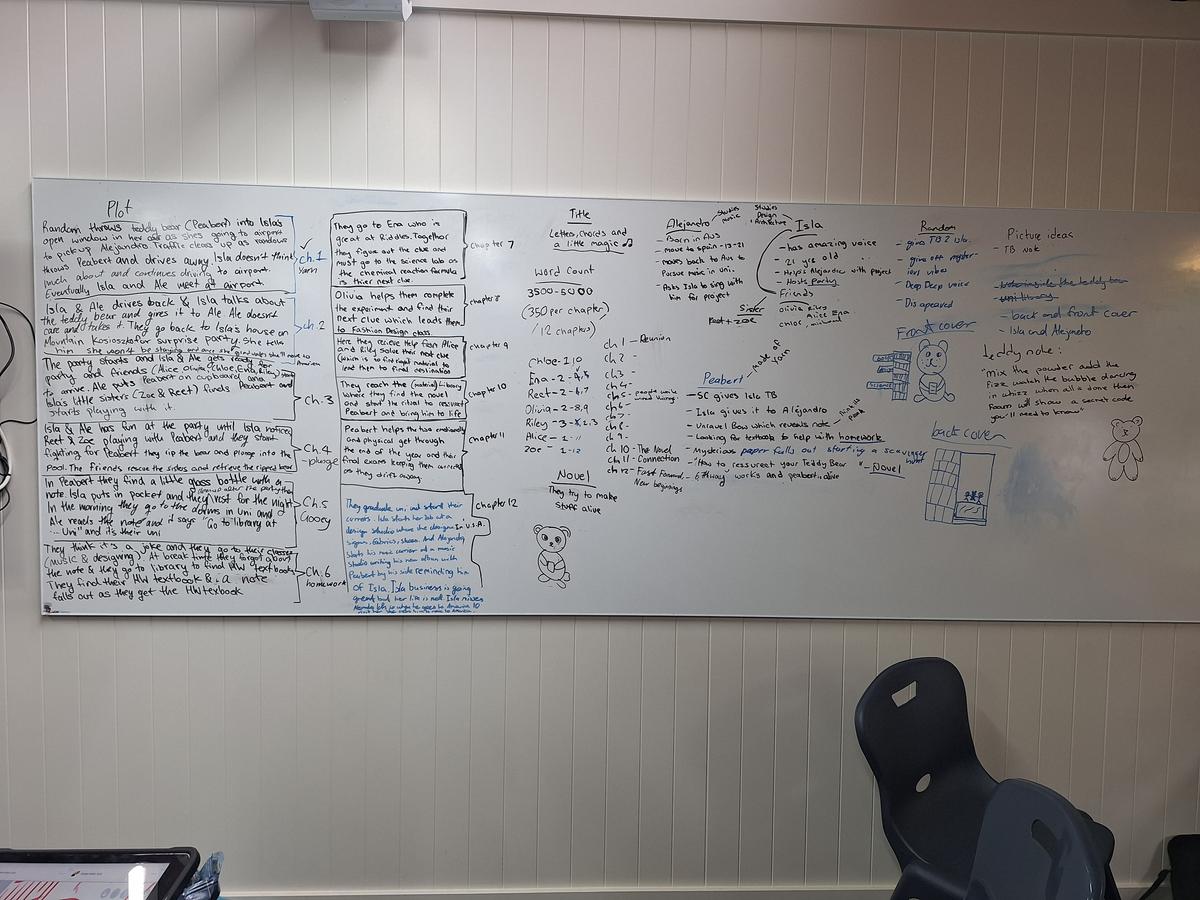 Plot
Random throws teddy bear (Peabert) into Isla's
open window in her car as she's going to airport
to pickup Alejandro. Traffic clears up as random
throws Peabert and drives away. Isla doesn't think
much about and continues driving to airport.
Eventually Isla and Ale meet at airport.
ch.1
Yarn
Isla & Ale drives back & Isla talks about
the teddy bear and gives it to Ale. Ale doesnt
care and takes it. They go back to Isla's house on
Mountain for surprise party. She tells
him she
ch.2
The party starts and Isla & Ale gets ready for
party and friends (Alice Olivia, Chloe, Ena, Riley)
to arrive. Ale puts Peabert on cupboard and
Isla's little sisters (Zoe & Reet) finds Peabert and
starts playing with it.
Ch.3
Isla & Ale has fun at the party until Isla noticed
Reet & Zoe playing with Peabert and they start
fighting for Peabert they rip the bear and plonge into the
pool. The friends rescue the sisters and retrieve the ripped bear
Ch.4
- plunge
In Peabert they find a little glass bottle with a
note. Isla puts in pocket and they rest for the night
In the morning they go to the dorms in uni and
Ale reads the note and it says "Go to library at
Uni" and its their uni
Ch.5
Gooey
They think it's a joke and they go to their classes
(music & designing). At break time they forgot about
the note & they go to library to find HW textbook
They find their HW textbook & a note
falls out as they get the HW texbook
Ch.6
homework
They go to Ena who is
great at Riddles. Together
they figure out the clue and
must go to the science lab as
the chemical reaction formula
is thier next clue.
chapter 7
Olivia helps them complete
the experiment and find their
next clue which leads them
to Fashion Design class.
chapter 8
Here they recieve help from Alice
and Riley solve their next clue
(which is to find right material to
lead them to final destination
chapter 9
They reach the library
where they find the novel
and start the ritual to resurrect
Peabert and bring him to life
chapter 10
Peabert helps the two emotionally
and physical get through
the end of the year and their
final exams keeping them connected
as they drift away.
chapter 11
They graduate uni and start their
careers. Isla starts her job at a
design studio where she designs
signs, fabrics, shoes. And Alejandro
starts his music career and a music
studio writing his new album with
Peabert by his side reminding him
of Isla. Isla business is going
great but her life is not. Isla misses
In U.S.A.
chapter 12
Title
Letters, Chords and
a little magic
Word Count
3500-5000
(350 per chapter)
(12 chapters)
Chloe - 1.10
Ena - 2 -
Reet - 2 - 6,7
Olivia - 2 - 8,9
Riley - 3 -
Alice - 2 -
Zoe - 1 - 12
Novel
They try to make
stuff alive
ch 1 - Reunion
ch 2 -
ch 3 -
ch 4 -
ch 5 -
ch 6 -
ch 7 -
ch 8 -
ch 9 -
ch 10 - The Novel
ch 11 - Connection
ch 12 - Fast Forward,
New beginnings
Alejandro
Studies
music
- Born in Aus
- move to spain - 13-21
- moves back to Aus to
Pursue music in Uni.
- Asks Isla to sing with
him for project
Studies
Design
Architecture
Isla
- has amazing voice
- 21 yrs old
- Helps Alejandro with project
- Hosts Party
Friends
Olivia Riley
Alice Ena
Chloe,
Sister
Reet + Zoe
made of
yarn
Peabert
- SC gives Isla TB
- Isla gives it to Alejandro
- Unravel Bow which reveals note
- Looking for textbook to help with homework
- Mysterious paper falls out starting a scavenger
hunt
- "How to ressurect your Teddy Bear" - Novel
- works and peabert alive
Random
- gives TB 2 Isla.
- give off myster-
ious vibes
- Deep Deep voice
- Disapeared
Front cover
back cover
Picture ideas
- TB Note
- back and front cover
- Isla and Alejandro
teddy note:
"Mix the powder add the
fizz watch the bubble dancing
in whizz when all is done then
Foam will show a secret code
you'll need to know"